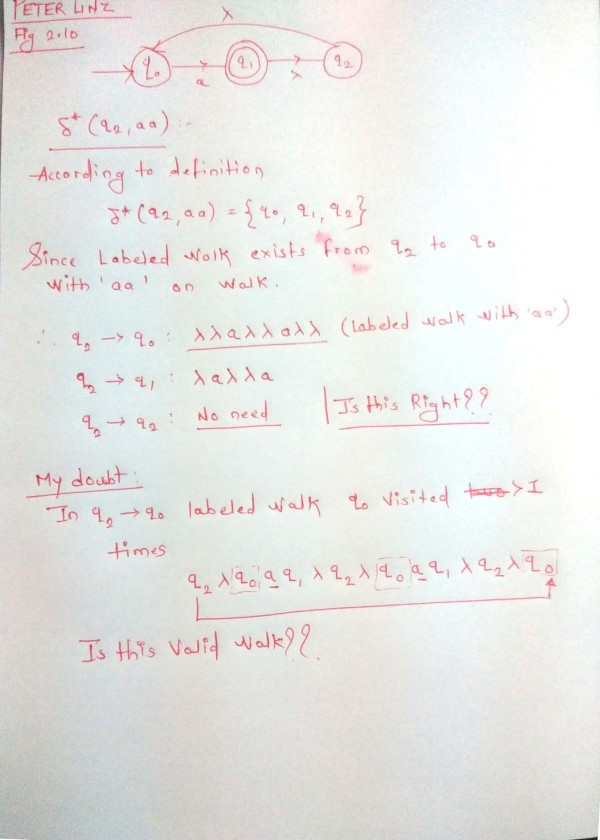 PETER LINZ
Fig 2.10
λ
q₀ a q₁ λ q₂
δ*(q₂, aa) :-
According to definition
δ*(q₂, aa) = {q₀, q₁, q₂}
Since Labeled walk exists from q₂ to q₀
with 'aa' on walk.
∴ q₂ → q₀ : λλaλλaλλ (Labeled walk with 'aa')
q₂ → q₁ : λaλλa
q₂ → q₂ : No need
Is this Right??
My doubt:
In q₂ → q₀ labeled walk q₀ visited >1
times
q₂ λ q₀ a q₁ λ q₂ λ q₀ a q₁ λ q₂ λ q₀
Is this valid walk??